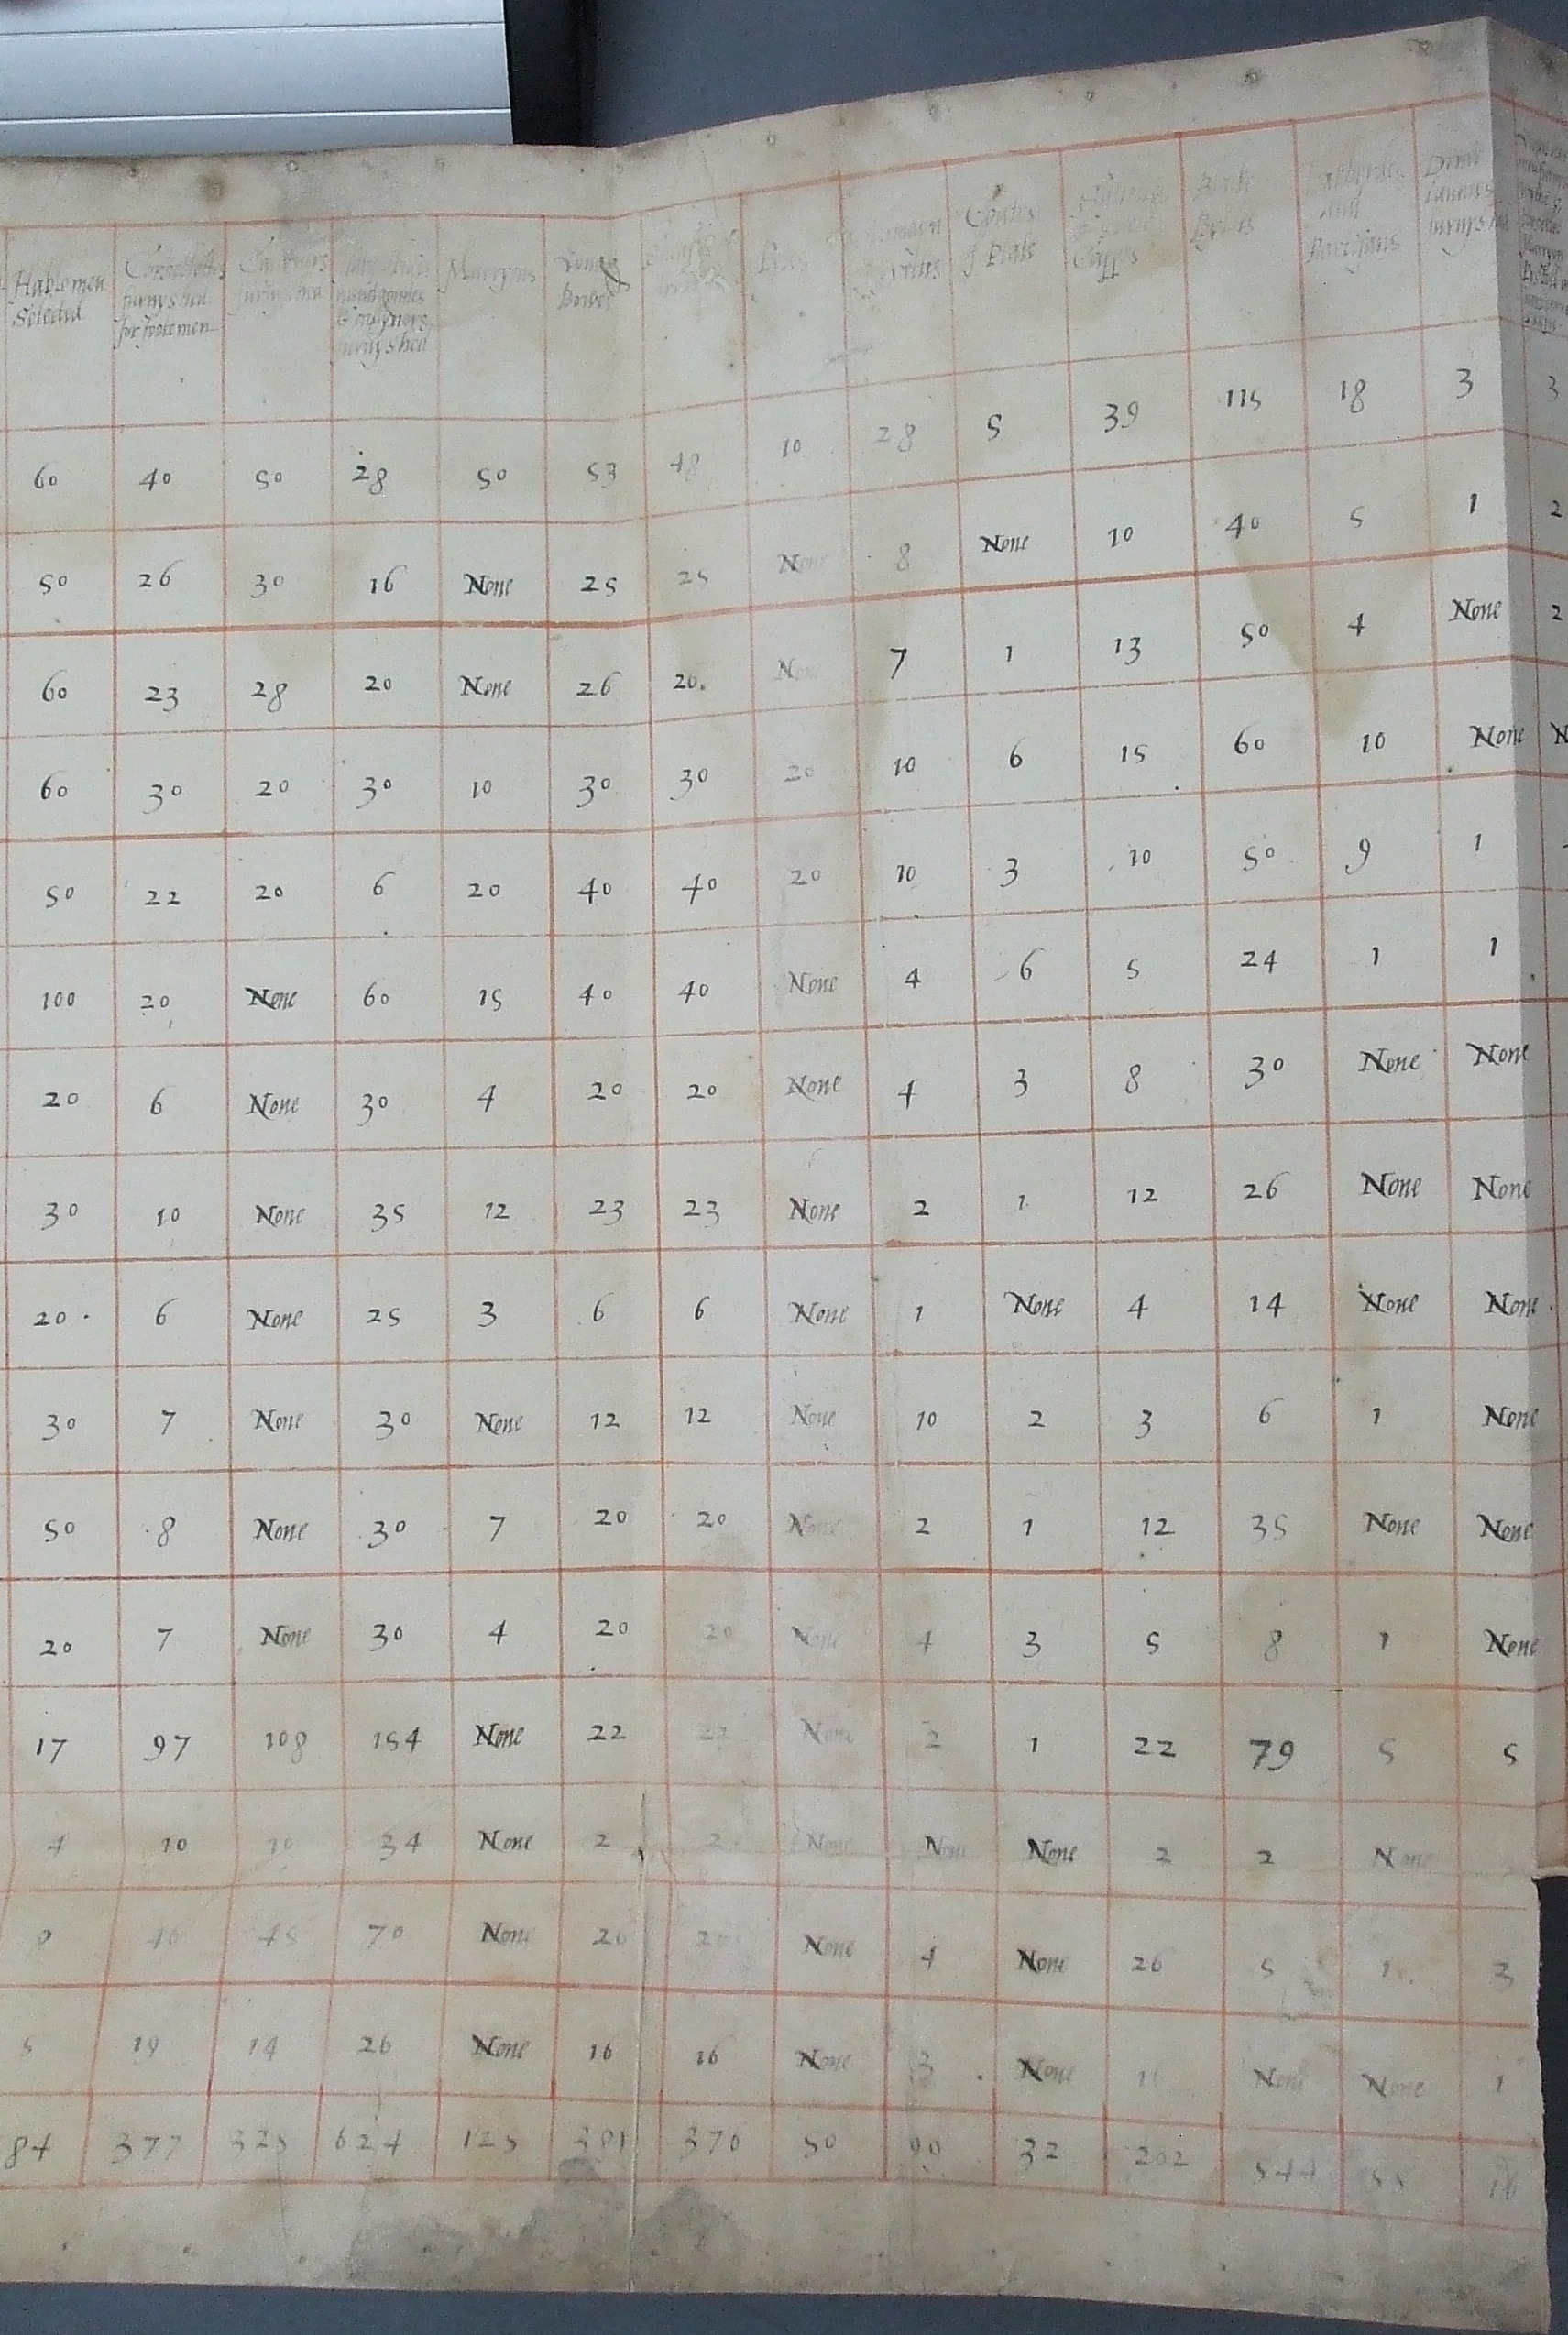 Hablemen Selected
Corselettes furnyshed for footemen
furnyshed
furnyshed
Murryons
Long Bowes
Coates of Plate
Cappes
Black Bylles
Halberdes and Partisans
Demi launces furnyshed
60 40 50 28 50 53 48 10 28 5 39 115 18 3 3
50 26 30 16 None 25 25 None 8 None 10 40 5 1 2
60 23 28 20 None 26 20. None 7 1 13 50 4 None 2
60 30 20 30 10 30 30 20 10 6 15 60 10 None
50 22 20 6 20 40 40 20 10 3 10 50 9 1
100 20 None 60 15 40 40 None 4 6 5 24 1 1
20 6 None 30 4 20 20 None 4 3 8 30 None None
30 10 None 35 12 23 23 None 2 1 12 26 None None
20 6 None 25 3 6 6 None 1 None 4 14 None None
30 7 None 30 None 12 12 None 10 2 3 6 1 None
50 8 None 30 7 20 20 None 2 1 12 35 None None
20 7 None 30 4 20 20 None 4 3 5 8 1 None
17 97 108 154 None 22 22 None 2 1 22 79 5 5
4 10 10 34 None 2 2 None None None 2 2 None
46 45 70 None 26 20 None 4 None 26 5 1 3
5 19 14 26 None 16 16 None 3 None 16 None None 1
84 377 325 624 125 381 370 50 99 32 202 544 55 16